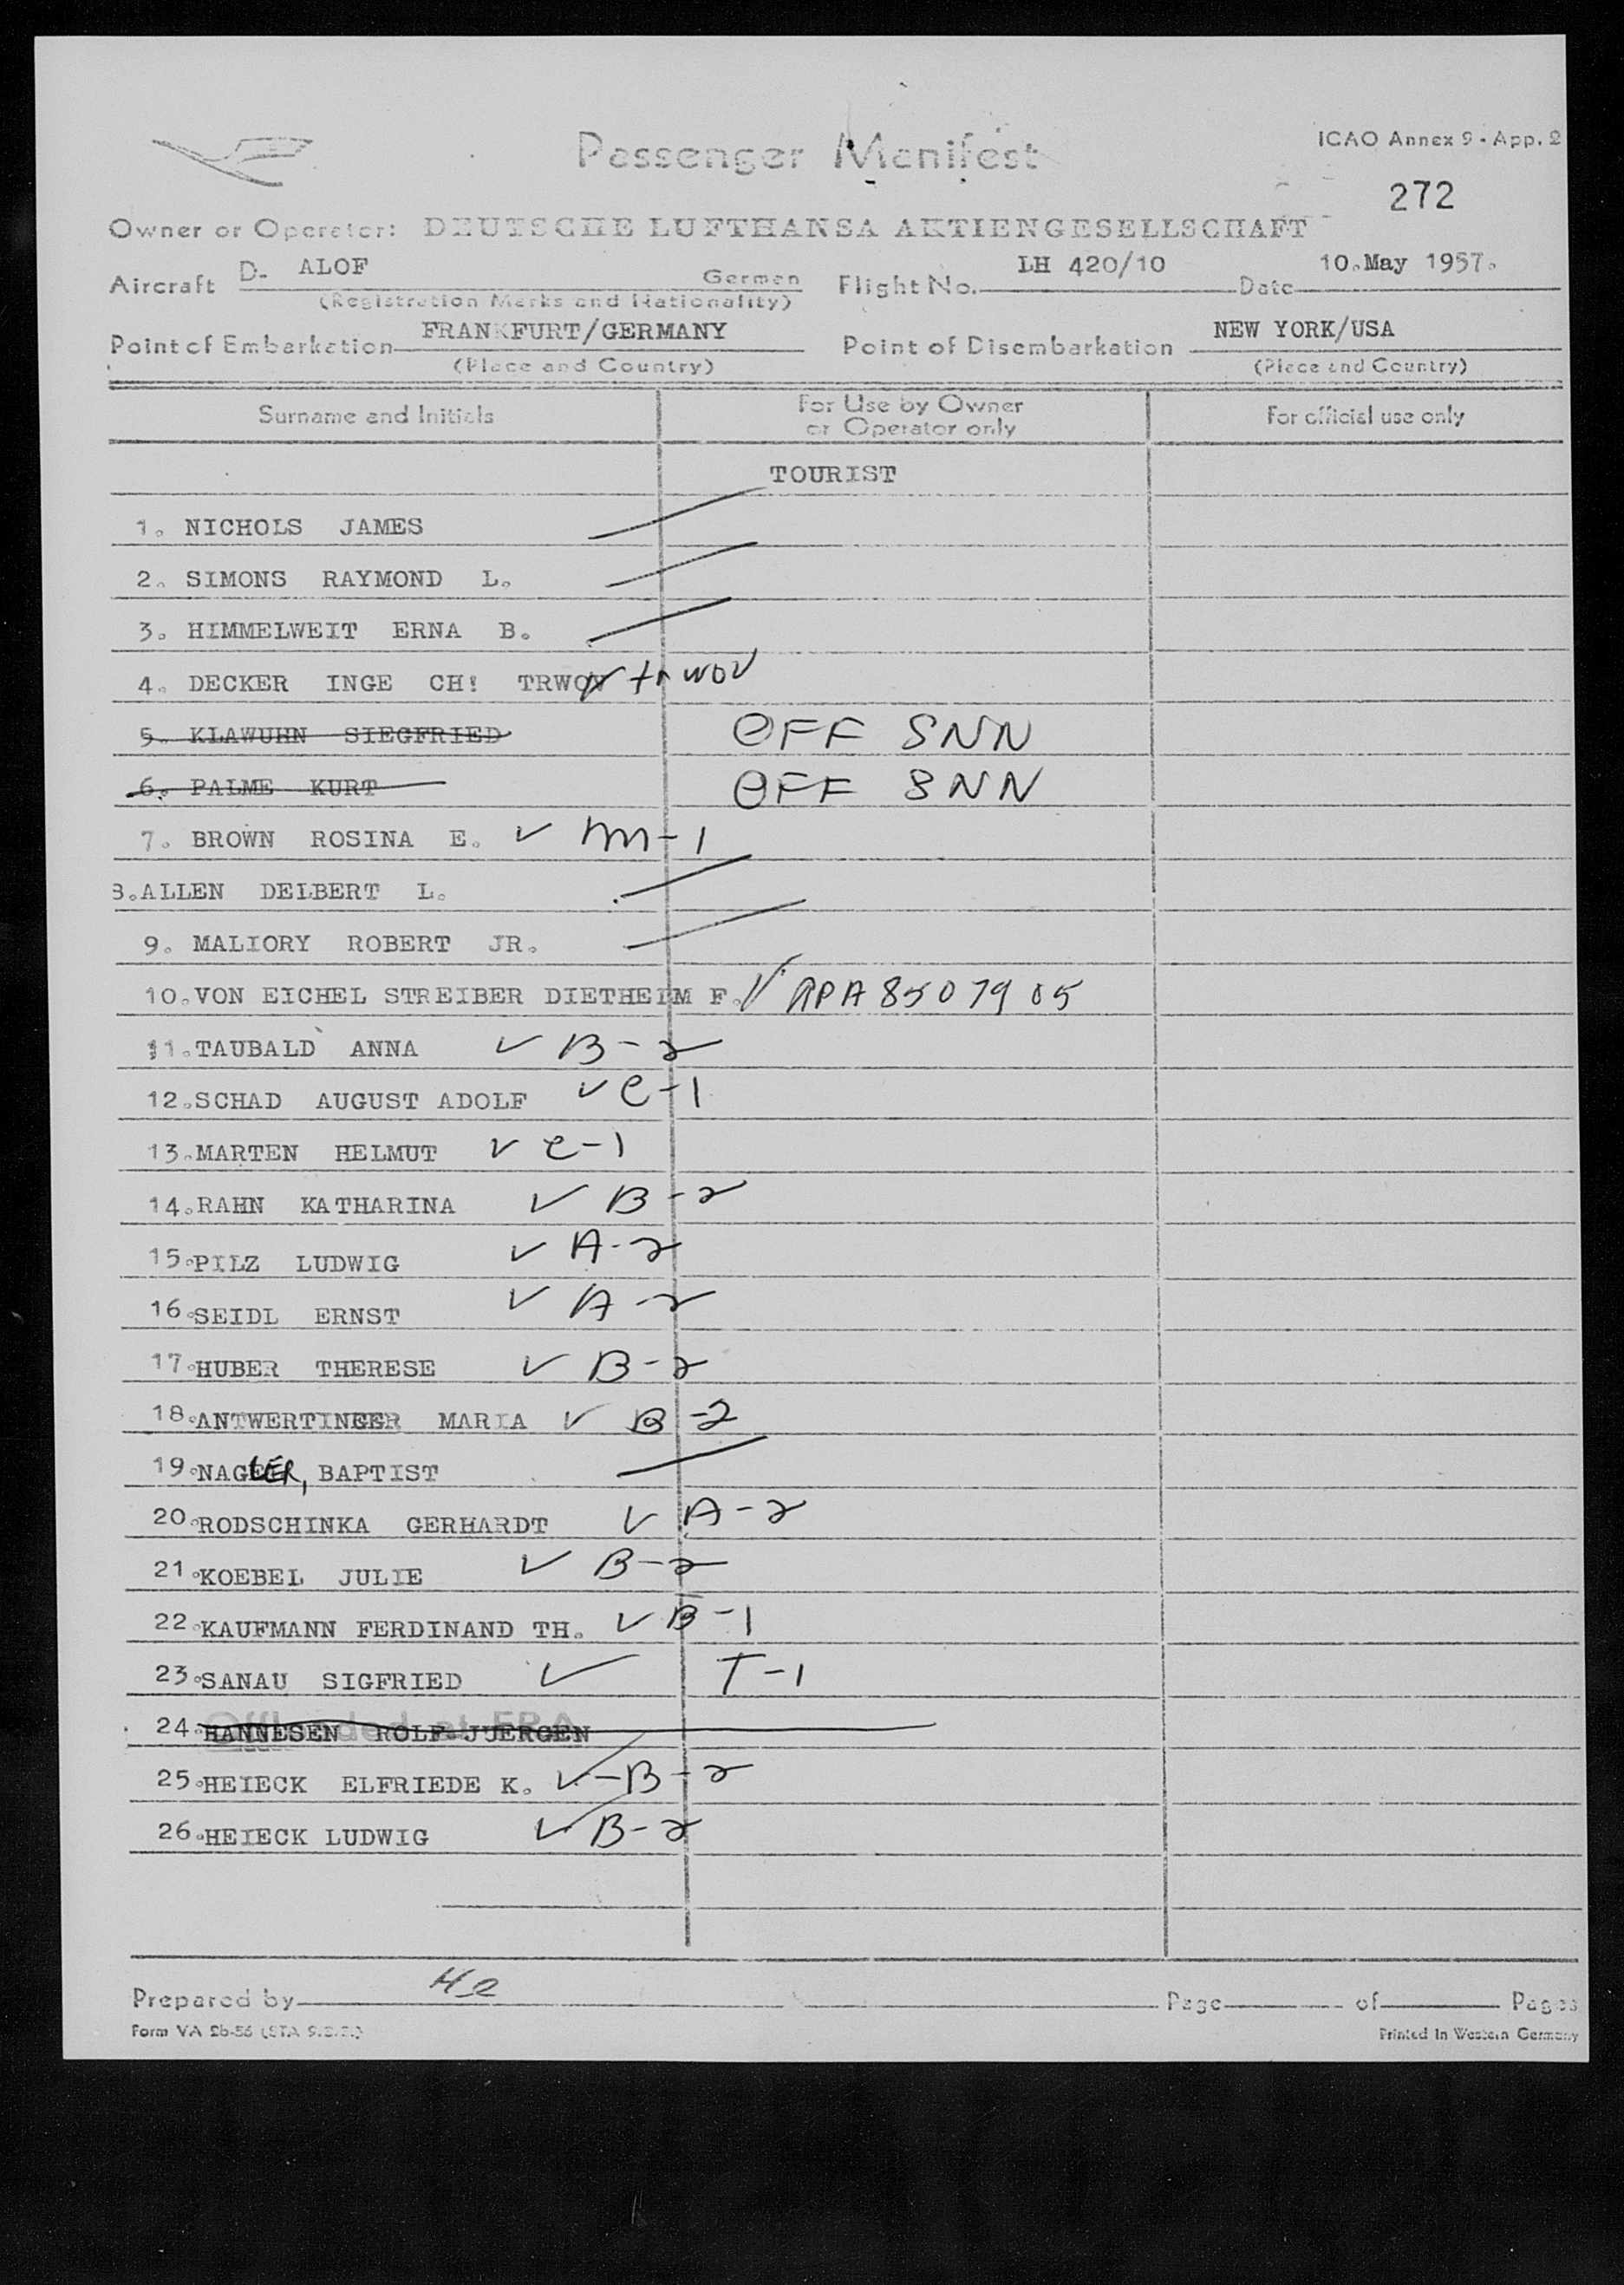 Passenger Manifest
ICAO Annex 9 - App. 2
272
Owner or Operator: DEUTSCHE LUFTHANSA AKTIENGESELLSCHAFT
Aircraft D- ALOF German Flight No. LH 420/10 Date 10.May 1957.
(Registration Marks and Nationality)
Point of Embarkation FRANKFURT/GERMANY Point of Disembarkation NEW YORK/USA
(Place and Country) (Place and Country)
Surname and Initials For Use by Owner or Operator only For official use only
TOURIST
1. NICHOLS JAMES
2. SIMONS RAYMOND L.
3. HIMMELWEIT ERNA B.
4. DECKER INGE CH! TRWOV ✓ trwov
5. KLAWUHN SIEGFRIED OFF SNN
6. PALME KURT OFF SNN
7. BROWN ROSINA E. ✓ m-1
8.ALLEN DELBERT L.
9. MALIORY ROBERT JR.
10.VON EICHEL STREIBER DIETHELM F. ✓ APA 8507905
11.TAUBALD ANNA ✓ B-2
12.SCHAD AUGUST ADOLF ✓ C-1
13.MARTEN HELMUT ✓ C-1
14.RAHN KATHARINA ✓ B-2
15.PILZ LUDWIG ✓ A-2
16.SEIDL ERNST ✓ A-2
17.HUBER THERESE ✓ B-2
18.ANTWERTINGER MARIA ✓ B-2
19.NAGLER, BAPTIST
20.RODSCHINKA GERHARDT ✓ A-2
21.KOEBEL JULIE ✓ B-2
22.KAUFMANN FERDINAND TH. ✓ B-1
23.SANAU SIGFRIED ✓ T-1
24.HANNESEN ROLF-JUERGEN
Offloaded at FRA
25.HEIECK ELFRIEDE K. ✓ B-2
26.HEIECK LUDWIG ✓ B-2
Prepared by Page of Pages
Form VA 26-56
Printed in Western Germany